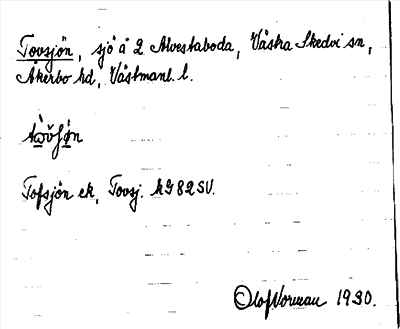 Tovsjön, sjö å 2 Alvestaboda, Västra Skedvi sn,
Åkerbo hd, Västmanl. l.
Tofsjön ek, Tovsj. kG 82 SV.
Olof Norman 1930.